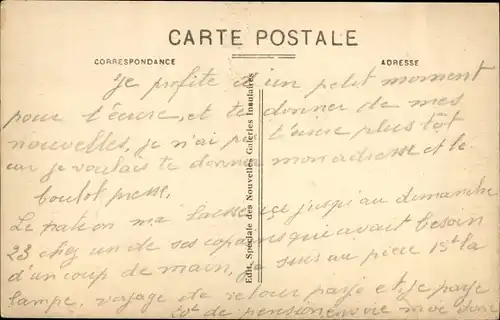 CARTE POSTALE
CORRESPONDANCE
ADRESSE
Edit. Spéciale des Nouvelles Galeries Insulaires
Je profite d'un petit moment
pour t'écrire, et te donner de mes
nouvelles, je n'ai pu t'écrire plus tôt
car je voulais te donner mon adresse et le
boulot presse.
Le patron me laisse ici jusqu'au dimanche
23 chez un de ses copains qui avait besoin
d'un coup de main, je suis au pièce 15t la
lampe, voyage de retour payé et je paye
20t de pension vie moi donc